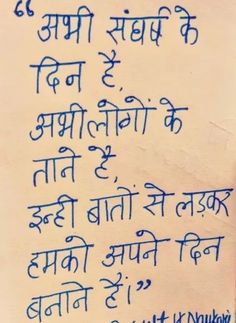 “अभी संघर्ष के
दिन है,
अभी लोगों के
ताने है,
इन्ही बातों से लड़कर
हमको अपने दिन
बनाने हैं।”